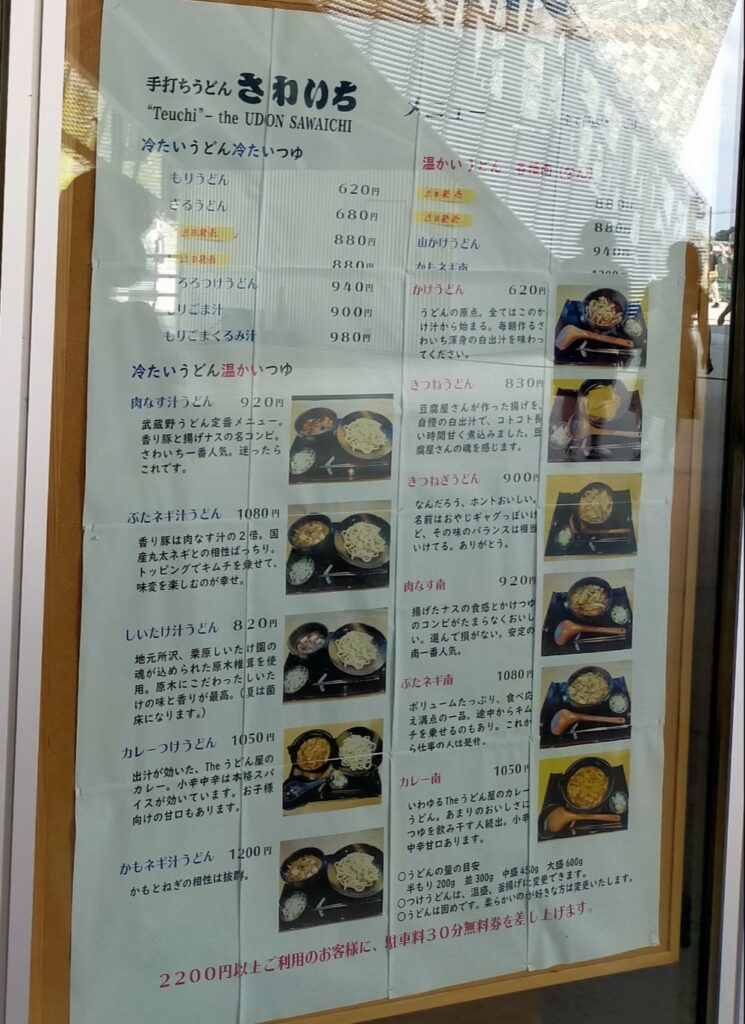 手打ちうどん さわいち
"Teuchi"- the UDON SAWAICHI
メニュー
冷たいうどん冷たいつゆ
もりうどん 620円
ざるうどん 680円
近日発売 880円
近日発売 880円
ろろつけうどん 940円
りごま汁 900円
もりごまくるみ汁 980円
冷たいうどん温かいつゆ
肉なす汁うどん 920円
武蔵野うどん定番メニュー。
香り豚と揚げナスの名コンビ。
さわいち一番人気。迷ったら
これです。
ぶたネギ汁うどん 1080円
香り豚は肉なす汁の2倍。国
産丸太ネギとの相性ばっちり。
トッピングでキムチを乗せて、
味変を楽しむのが幸せ。
しいたけ汁うどん 820円
地元所沢、栗原しいたけ園の
魂が込められた原木椎茸を使
用。原木にこだわったしいた
けの味と香りが最高。(夏は菌
床になります。)
カレーつけうどん 1050円
出汁が効いた、Theうどん屋の
カレー。小辛中辛は本格スパ
イスが効いています。お子様
向けの甘口もあります。
かもネギ汁うどん 1200円
かもとねぎの相性は抜群。
温かいうどん
近日発売 880円
近日発売 880円
山かけうどん 940円
かもネギ南 1200円
かけうどん 620円
うどんの原点。全てはこのか
け汁から始まる。毎朝作るさ
わいち渾身の白出汁を味わっ
てください。
きつねうどん 830円
豆腐屋さんが作った揚げを、
自慢の白出汁で、コトコト長
い時間甘く煮込みました。豆
腐屋さんの魂を感じます。
きつねぎうどん 900円
なんだろう、ホントおいしい。
名前はおやじギャグっぽいけ
ど、その味のバランスは相当
いけてる。ありがとう。
肉なす南 920円
揚げたナスの食感とかけつゆ
のコンビがたまらなくおいし
い。選んで損がない。安定の
南一番人気。
ぶたネギ南 1080円
ボリュームたっぷり、食べ応
え満点の一品。途中からキム
チを乗せるのもあり。これか
ら仕事の人は是非。
カレー南 1050円
いわゆるTheうどん屋のカレー
うどん。あまりのおいしさに
つゆを飲み干す人続出。小辛
中辛甘口あります。
○うどんの量の目安
半もり 200g 並 300g 中盛 450g 大盛 600g
○つけうどんは、温盛、釜揚げに変更できます。
○うどんは固めです。柔らかいのが好きな方は変更いたします。
2200円以上ご利用のお客様に、駐車料30分無料券を差し上げます。